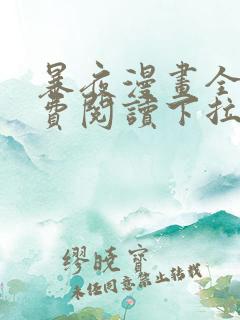 暴夜漫畫全
費閱讀下拉
繆曉寶
未经同意禁止转载